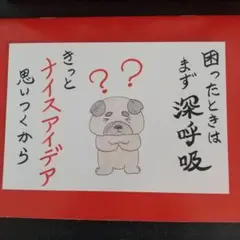 困ったときは
まず深呼吸
??
きっと
ナイスアイデア
思いつくから